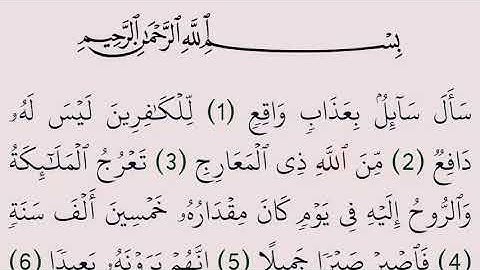 بِسْمِ اللَّهِ الرَّحْمَٰنِ الرَّحِيمِ
سَأَلَ سَآئِلُۢ بِعَذَابٖ وَاقِعٖ (1) لِّلۡكَٰفِرِينَ لَيۡسَ لَهُۥ
دَافِعٞ (2) مِّنَ ٱللَّهِ ذِي ٱلۡمَعَارِجِ (3) تَعۡرُجُ ٱلۡمَلَٰٓئِكَةُ
وَٱلرُّوحُ إِلَيۡهِ فِي يَوۡمٖ كَانَ مِقۡدَارُهُۥ خَمۡسِينَ أَلۡفَ سَنَةٖ
(4) فَٱصۡبِرۡ صَبۡرٗا جَمِيلًا (5) إِنَّهُمۡ يَرَوۡنَهُۥ بَعِيدٗا (6)